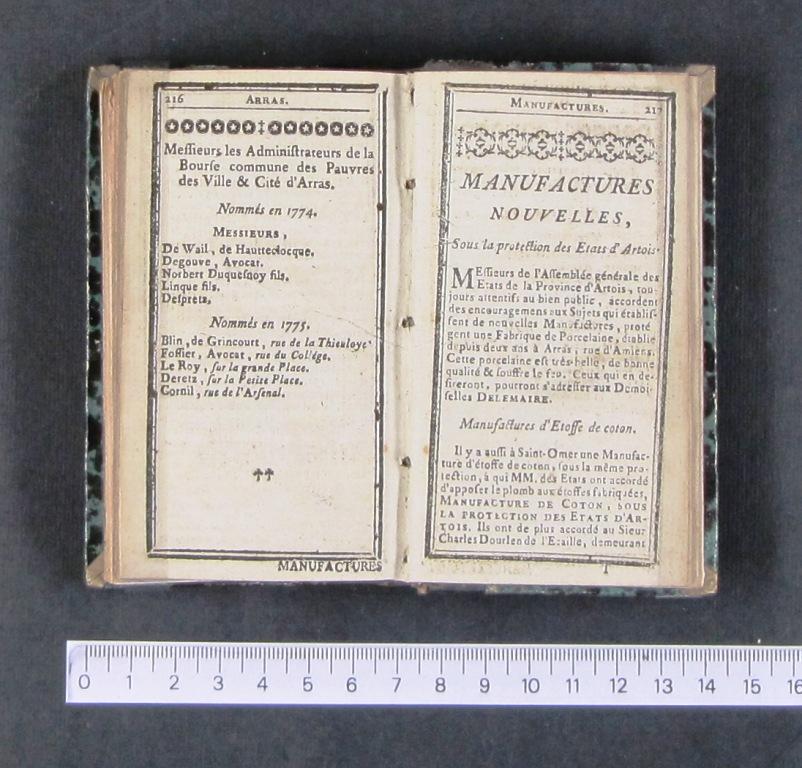 216 ARRAS.
Meſſieurs les Adminiſtrateurs de la
Bourſe commune des Pauvres
des Ville & Cité d'Arras.
Nommés en 1774.
MESSIEURS,
De Wail, de Hauttecloсque.
Degouve, Avocat.
Norbert Duqueſnoy fils.
Linque fils.
Deſpretz.
Nommés en 1775.
Blin, de Grincourt, rue de la Thieuloye
Foſſier, Avocat, rue du Collége.
Le Roy, ſur la grande Place.
Deretz, ſur la Petite Place.
Cornil, rue de l'Arſenal.
MANUFACTURES
MANUFACTURES. 217
MANUFACTURES
NOUVELLES,
Sous la protection des Etats d'Artois.
MEſſieurs de l'Aſſemblée générale des
Etats de la Province d'Artois, tou-
jours attentifs au bien public, accordent
des encouragemens aux Sujets qui établiſ-
ſent de nouvelles Manufactures, proté
gent une Fabrique de Porcelaine, établie
depuis deux ans à Arras, rue d'Amiens.
Cette porcelaine eſt très-belle, de bonne
qualité & ſouffre le feu. Ceux qui en de-
ſireront, pourront s'adreſſer aux Demoi-
ſelles DELEMAIRE.
Manufactures d'Etoffe de coton.
Il y a auſſi à Saint-Omer une Manufac-
ture d'étoffe de coton, ſous la même pro-
tection, à qui MM. des Etats ont accordé
d'appoſer le plomb aux étoffes fabriquées,
MANUFACTURE DE COTON, SOUS
LA PROTECTION DES ETATS D'AR-
TOIS. Ils ont de plus accordé au Sieur
Charles Dourlen de l'Ecaille, demeurant
T
0 1 2 3 4 5 6 7 8 9 10 11 12 13 14 15 16